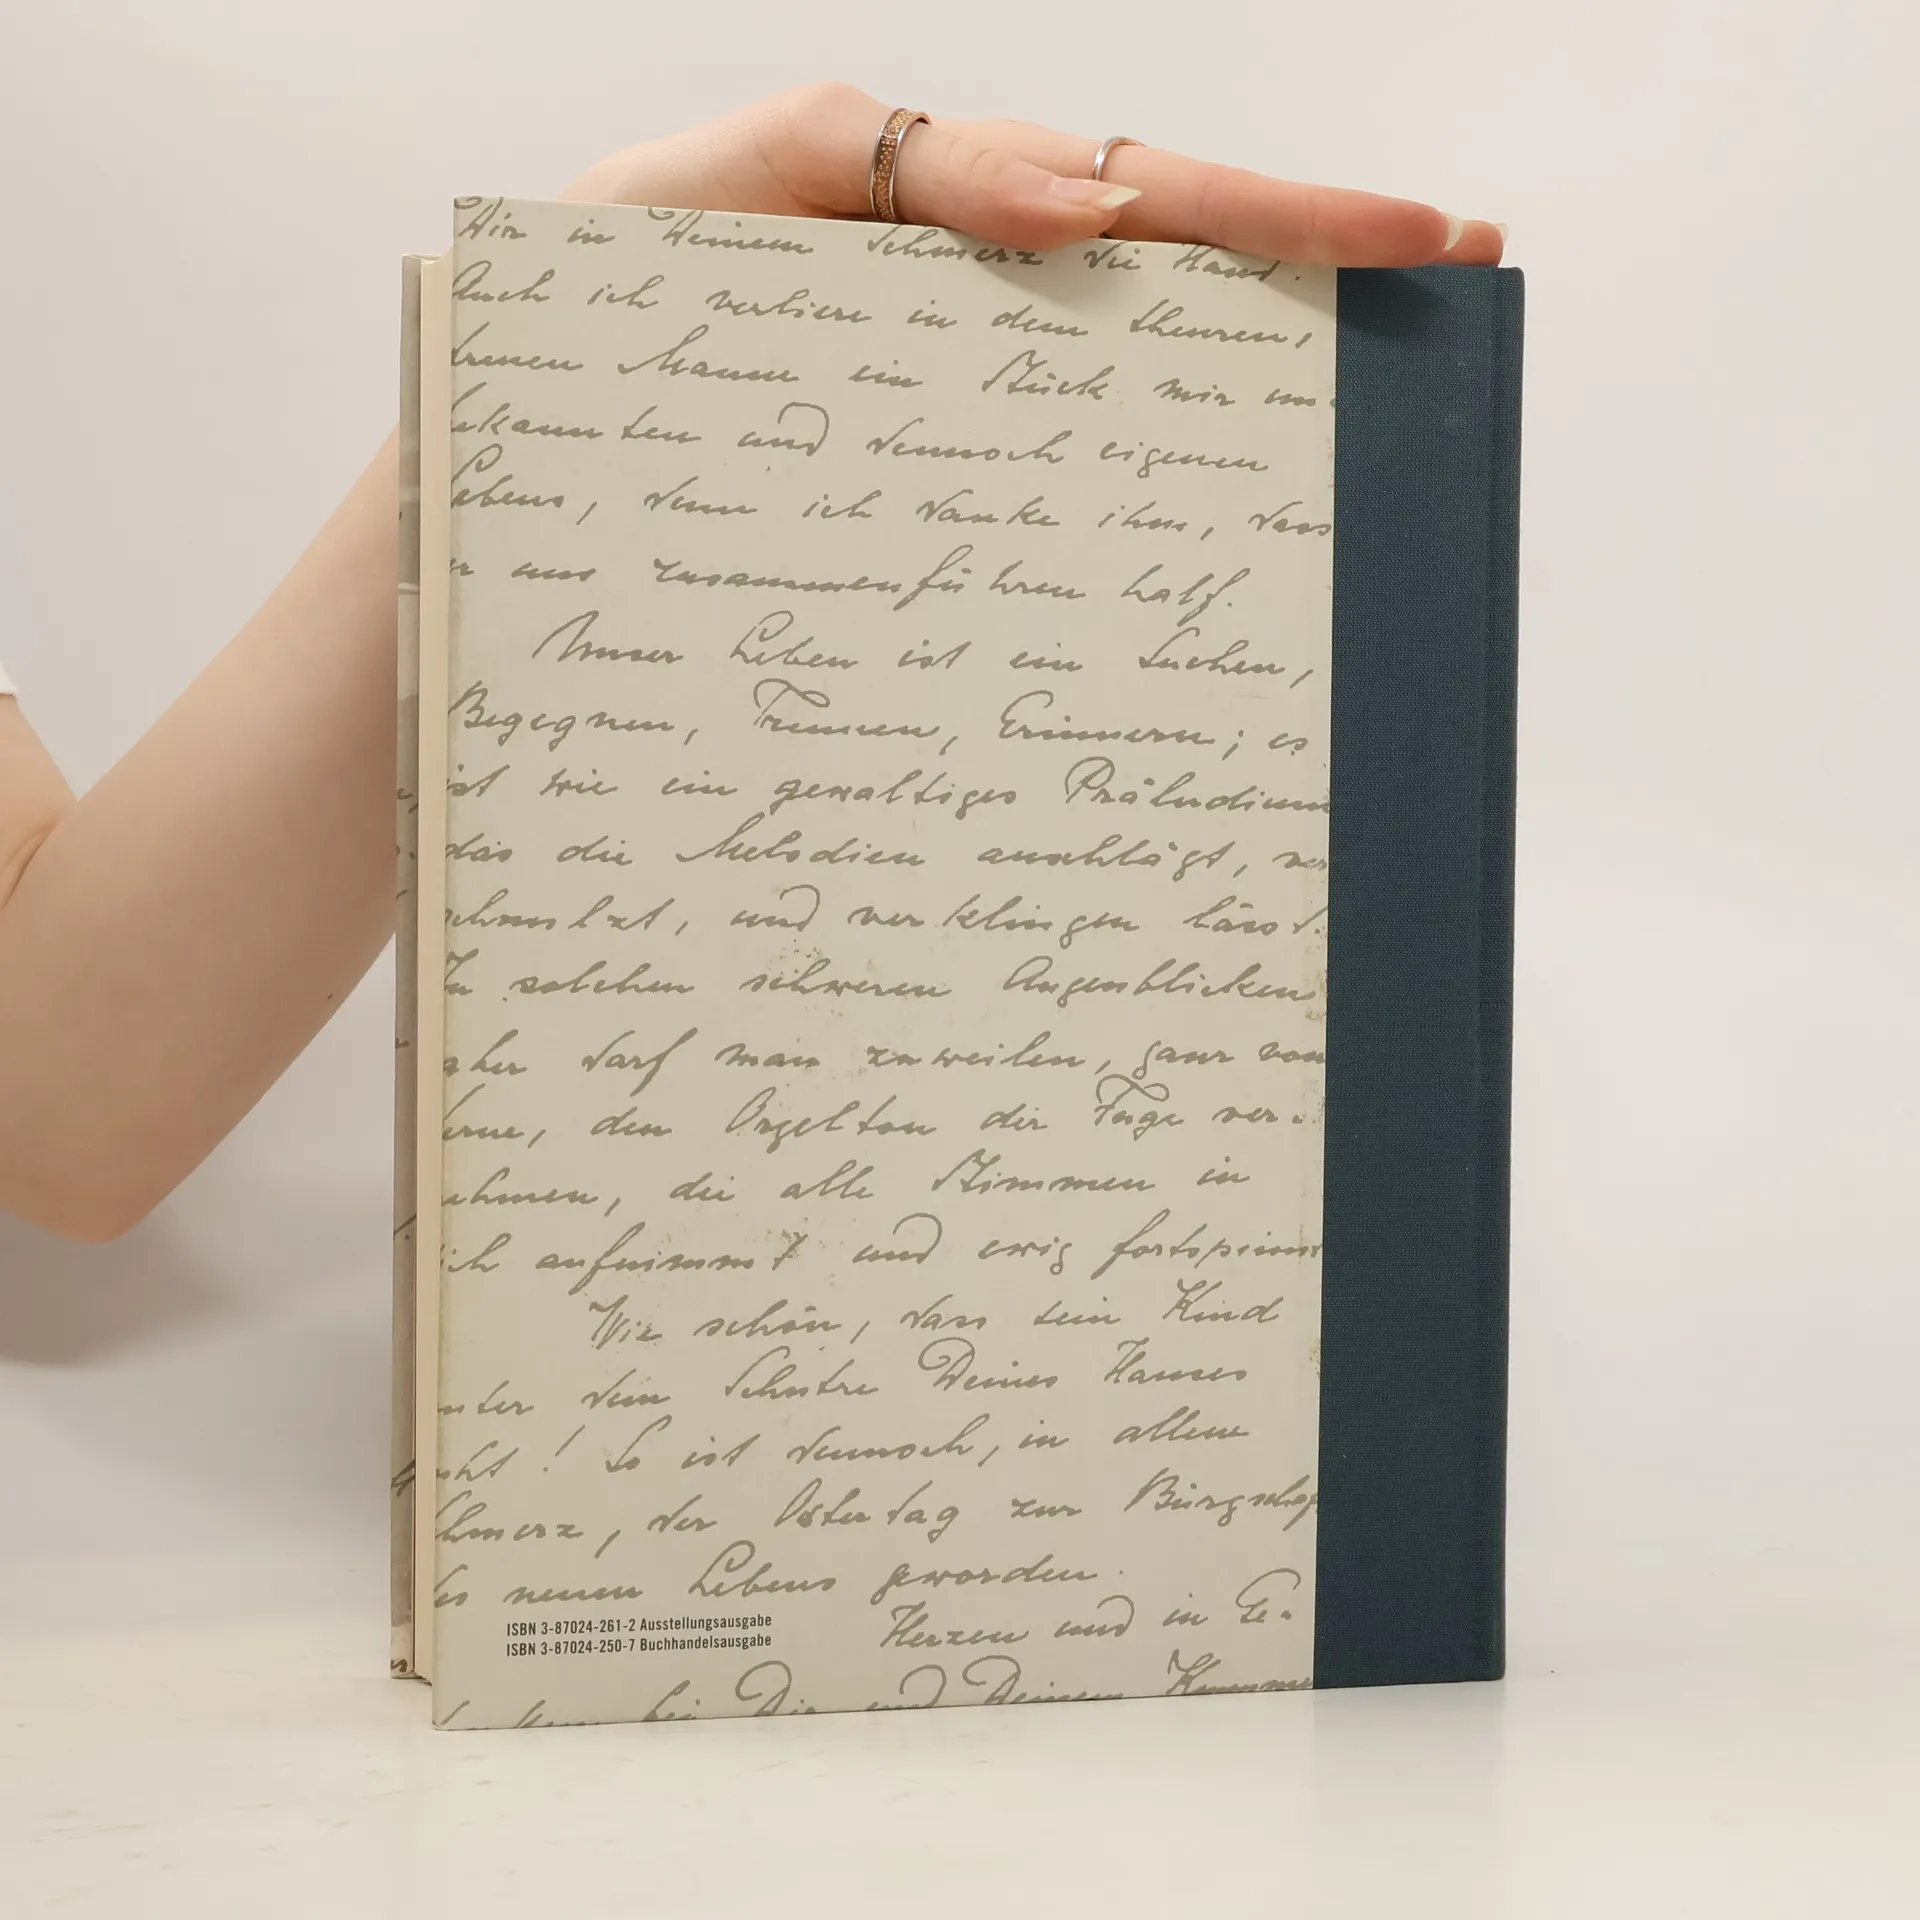 Dir in Deinem Schmerz die Hand.
Auch ich verliere in dem theuren,
treuen Manne ein Stück mir un-
bekannten und dennoch eigenen
Lebens, denn ich danke ihm, dass
er uns zusammenführen half.
Unser Leben ist ein Suchen,
Begegnen, Trennen, Erinnern; es
ist wie ein gewaltiges Präludium
das die Melodien anschlägt, ver
schmelzt, und verklingen lässt.
In solchen schweren Augenblicken
aber darf man zuweilen, ganz von
ferne, den Orgelton der Fuge ver-
nehmen, die alle Stimmen in
sich aufnimmt und ewig fortspinnt
Wie schön, dass sein Kind
unter dem Schutze Deines Hauses
! So ist dennoch, in allem
Schmerz, der Ostertag zur Bürgschaf
des neuen Lebens geworden.
Herzen und in Ge-
bei Dir und Deinem Kummer
ISBN 3-87024-261-2 Ausstellungsausgabe
ISBN 3-87024-250-7 Buchhandelsausgabe